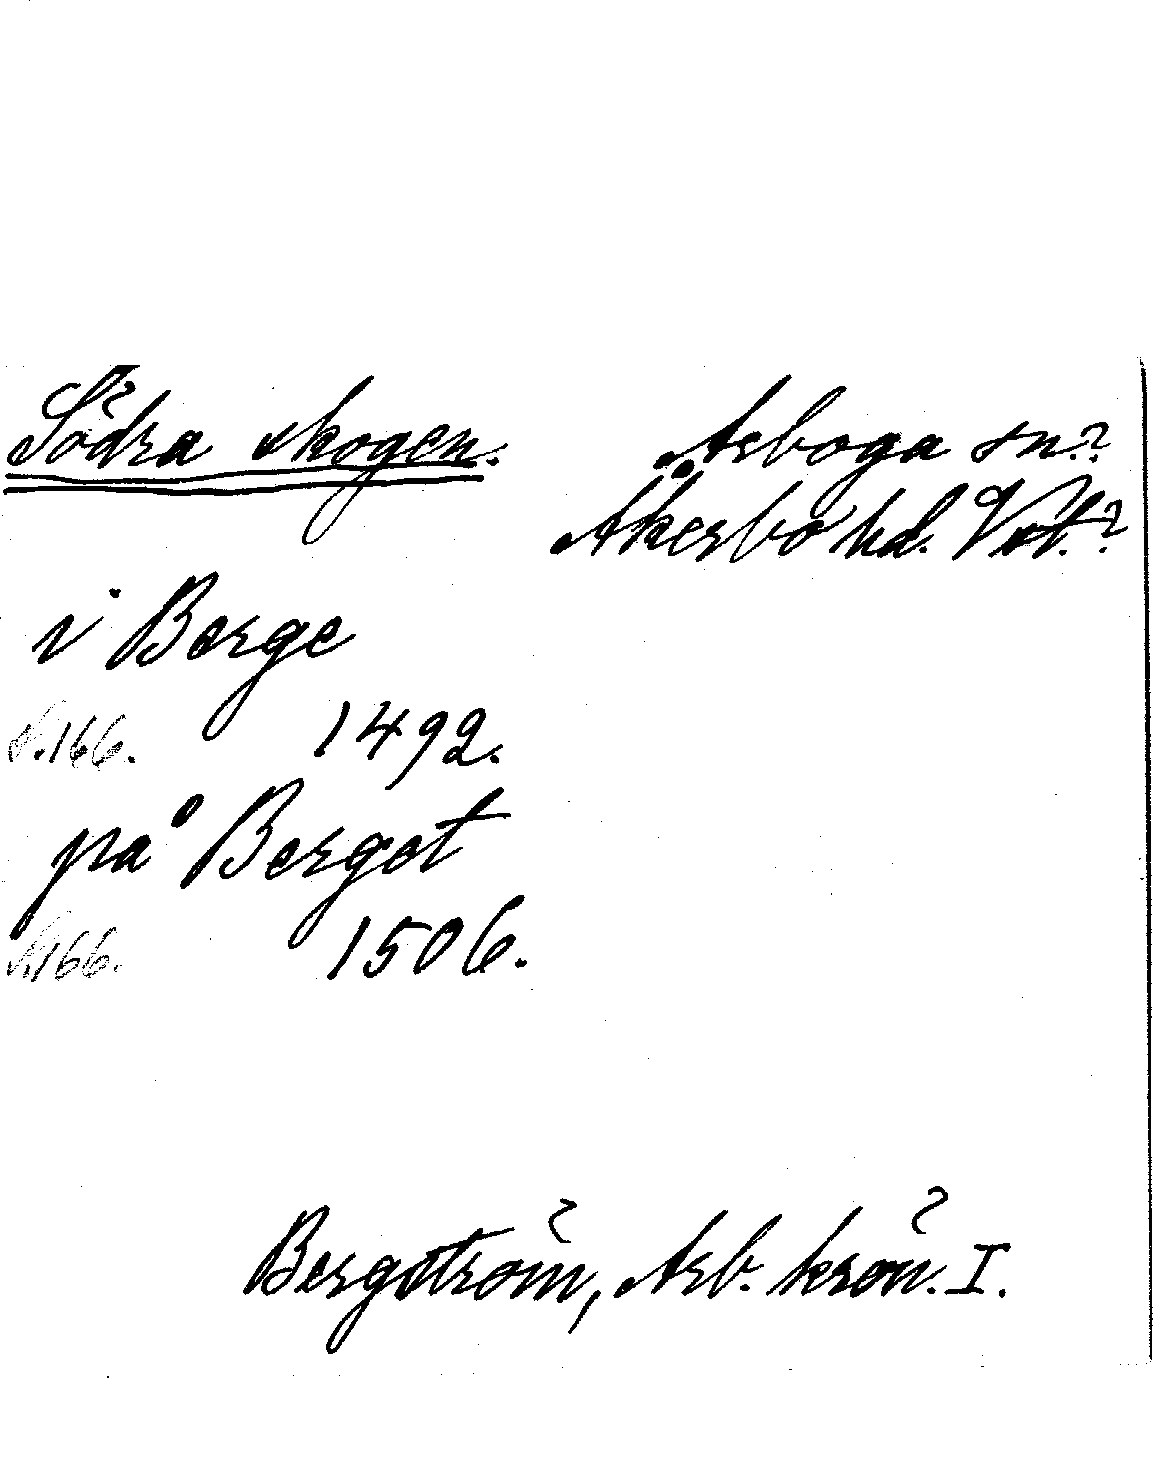 Södra skogen. Arboga sn?
Åkerbo hd. Vstm.?
i Berge
s. 166. 1492.
på Berget
s. 166. 1506.
Bergström, Arb. krön. I.